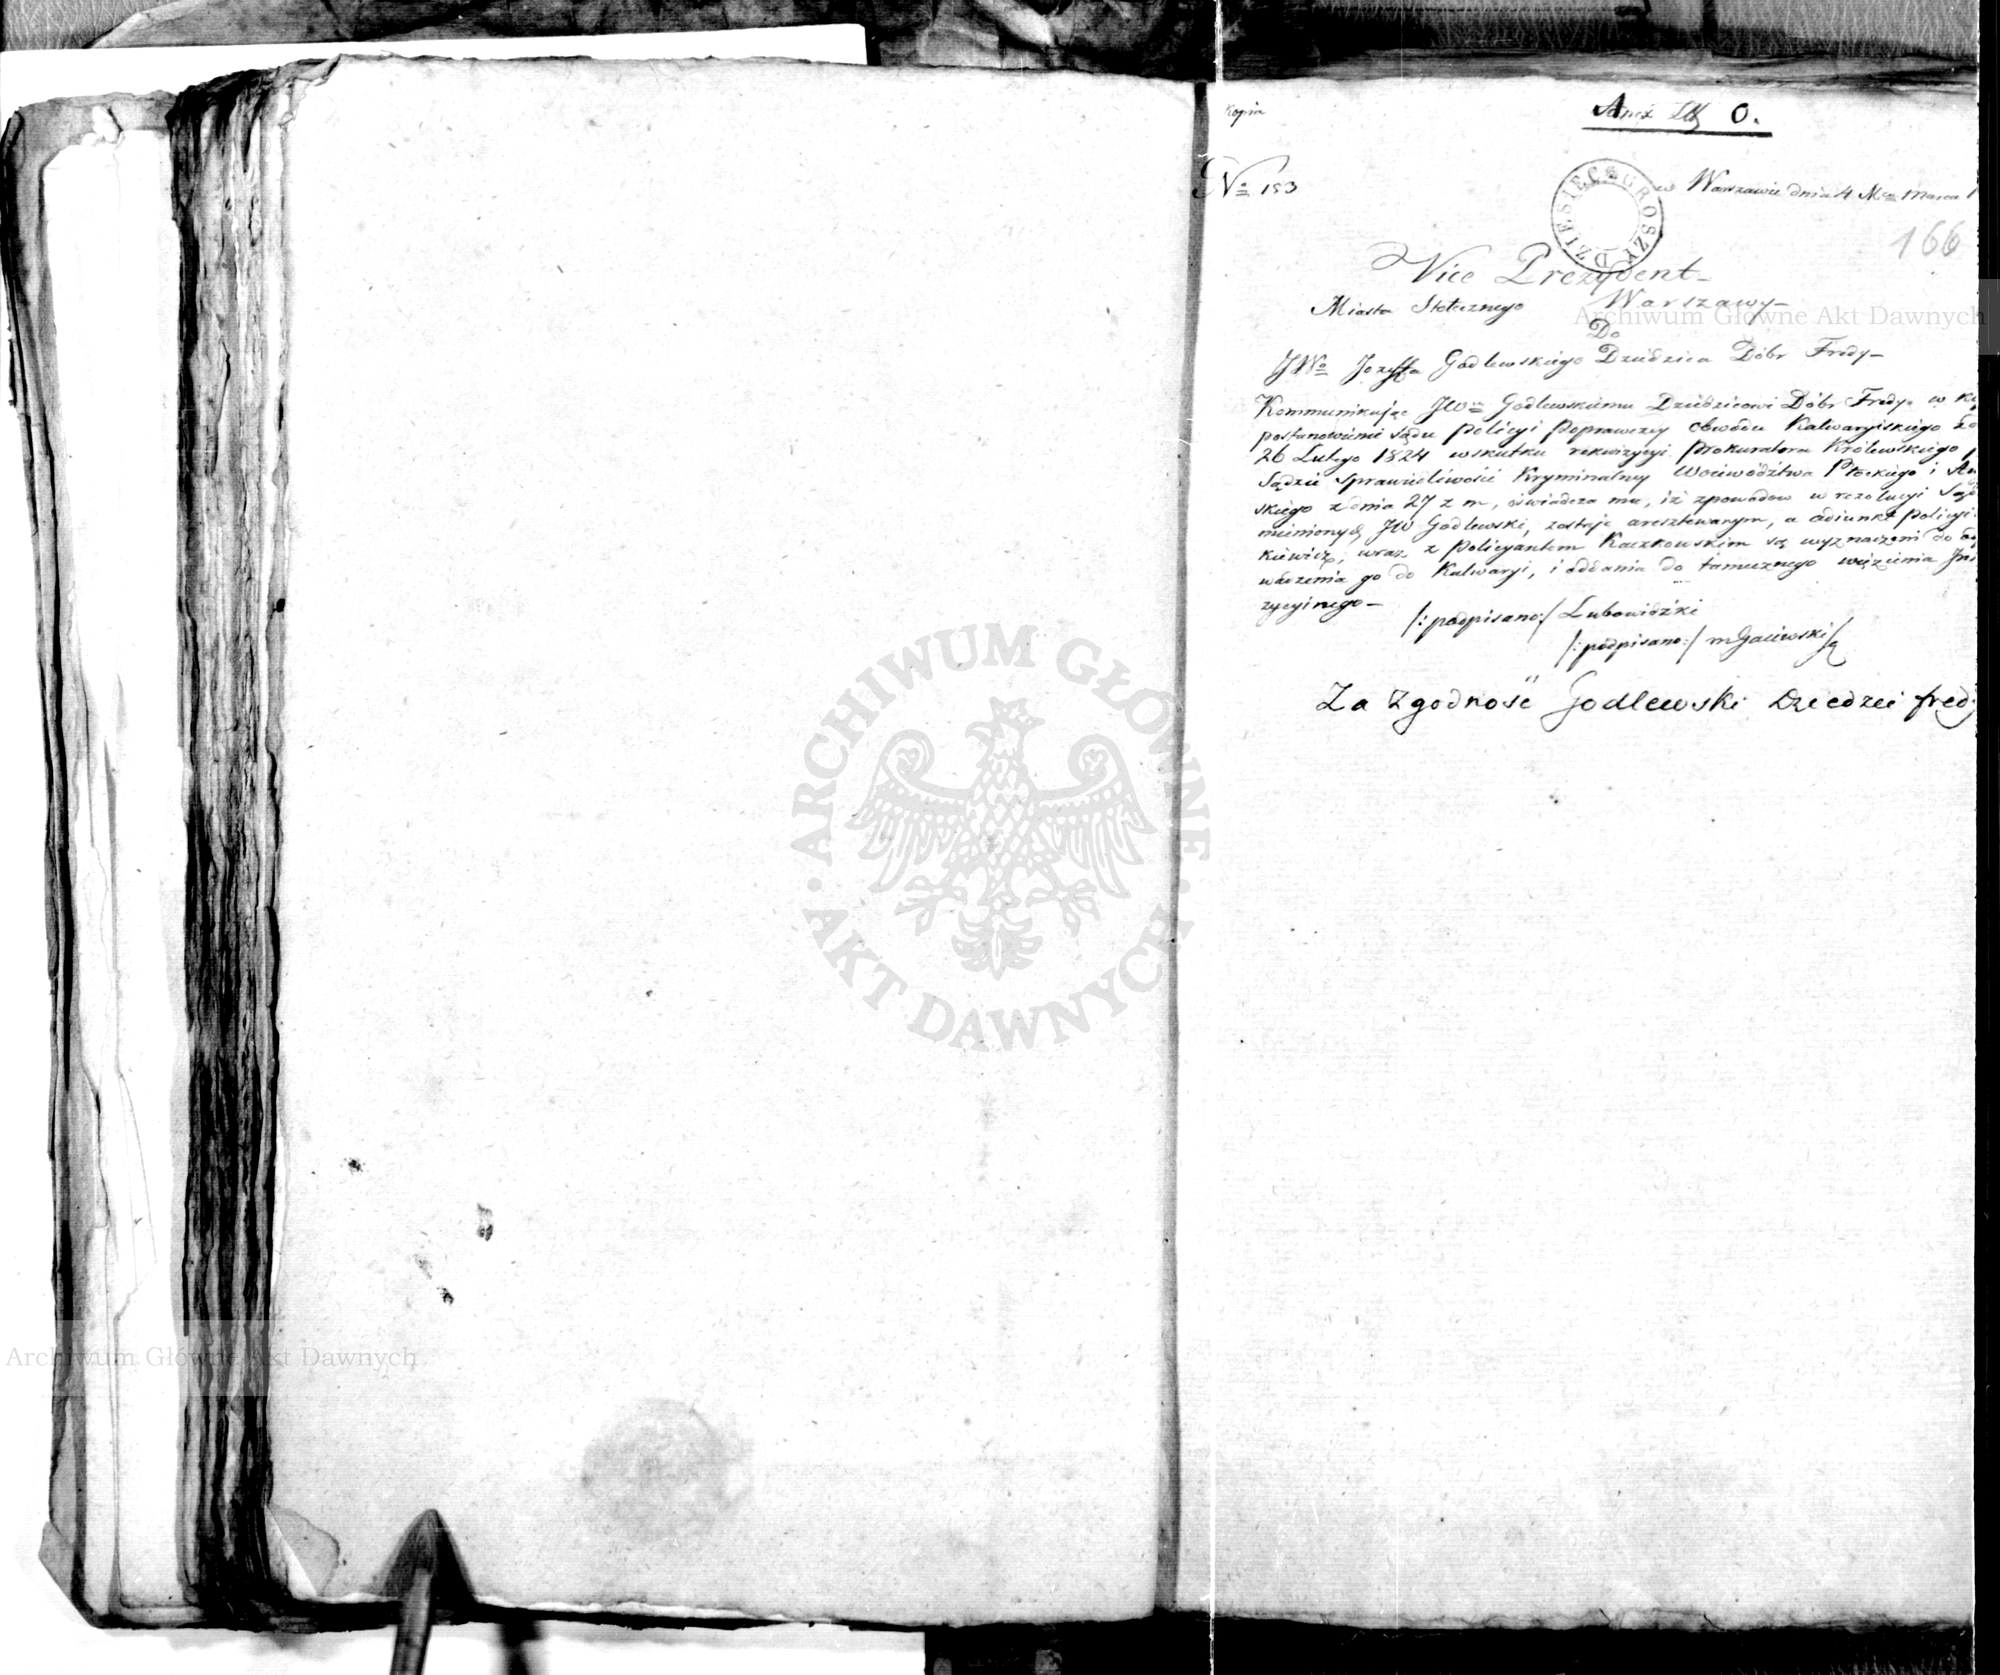 Kopia
Anex Lit. O.
No 153
DZIESIĘĆ GROSZY
w Warszawie dnia 4 Mca Marca 1
166
Vice Prezydent
Miasta Stołecznego Warszawy
Do
JWo Jozeffa Godlewskiego Dziedzica Dóbr Fredy
Kommunikując JWmu Godlewskiemu Dziedzicowi Dóbr Fredy w
postanowienie Sądu Policyi Poprawczey obwodu Kalwaryiskiego
26 Lutego 1824 wskutku rekwizycyi Prokuratora Królewskiego
Sądzie Sprawiedliwości Kryminalney Woiewództwa Płockiego i Au
skiego z dnia 27 z m, oświadcza mu, iż z powodów w rezolucyi Sąd
mienionych JW Godlewski, zostaje aresztowanym, a adiunkt Policyi
kiewicz, wraz z Policyantem Kaczkowskim są wyznaczeni do od
wiezienia go do Kalwaryi, i oddania do tamecznego więzienia In
zycyinego
/: podpisano:/ Lubowidzki
/: podpisano:/ m Gaciewski
Za Zgodność Godlewski Dziedzic fredy
ARCHIWUM GŁÓWNE AKT DAWNYCH
Archiwum Główne Akt Dawnych
Archiwum Główne Akt Dawnych